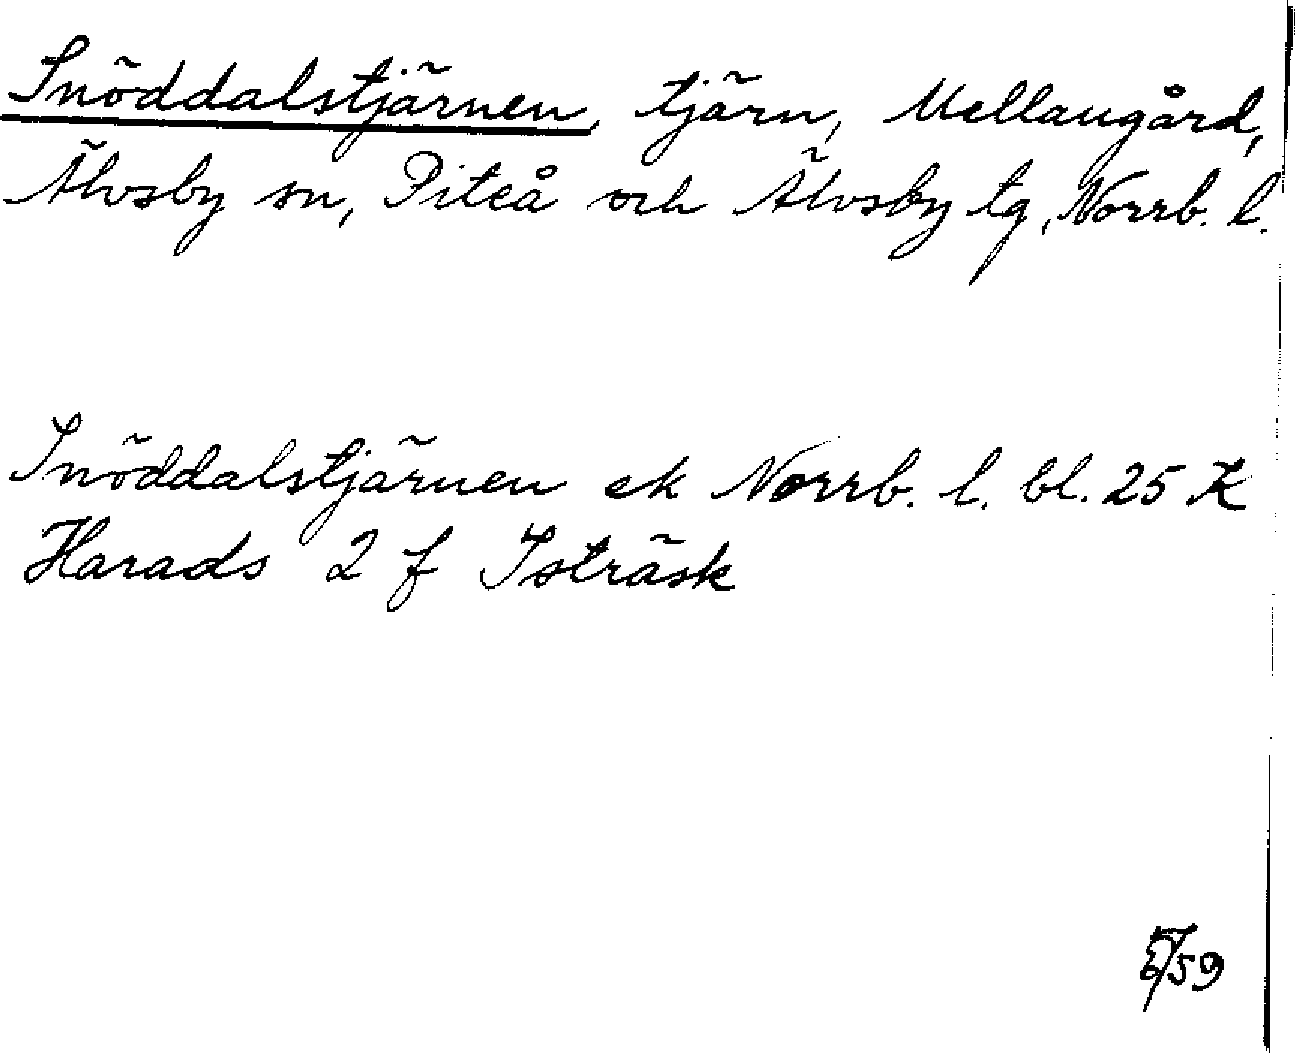 Snöddalstjärnen, tjärn, Mellangård,
Älvsby sn, Piteå och Älvsby tg, Norrb. l.
Snöddalstjärnen ek Norrb. l. bl. 25 K
Harads 2 f Isträsk
59